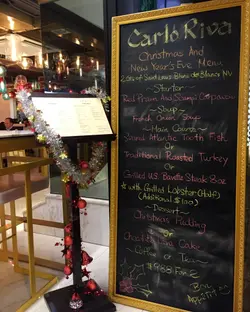 Carlo Riva
Christmas And
New Year's Eve Menu
Saint Louis Blanc de Blancs NV
~Starter~
Red Prawn And Scampi
~Soup~
French Onion Soup
~Main Course~
Atlantic Tooth Fish
Or
Traditional Roasted Turkey
Or
Grilled US Bavette Steak 8oz
* with Grilled Lobster (Half)
(Additional $100)
~Dessert~
Christmas Pudding
Or
Cake
Coffee or Tea
$988 For 2
Bon
Appetit